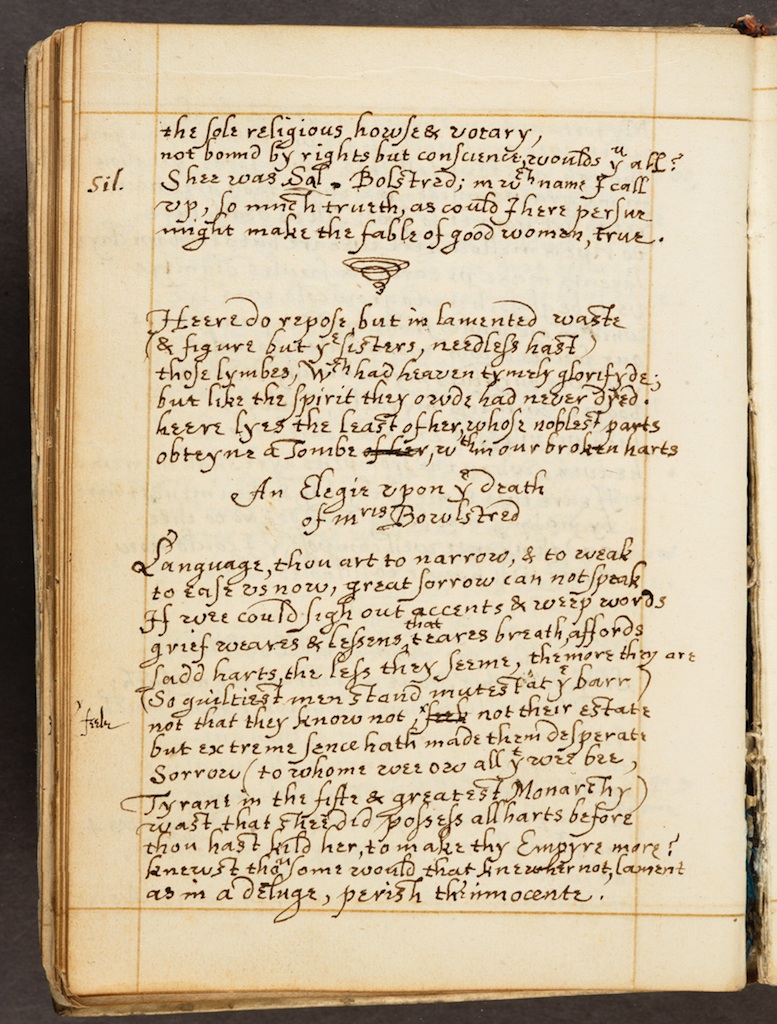 the sole religious howse & votary,
not bound by rights but conscience, woulds yu all?
Sil. Shee was Sal. Bolstred; in wch name I call
vp, so much trueth, as could I here persue
might make the fable of good women, true.
Heere do repose, but in lamented waste
(& figure but ye sisters, needless hast)
those lymbes, Wch had heaven tymely glorifyde;
but like the spirit they owde had never dyed.
heere lyes the least of her, whose noblest parts
obteyne a Tombe of her, wthin our broken harts
An Elegie vpon ye death
of mris Bowlstred
Language, thou art to narrow, & to weak
to ease vs now, great sorrow can not speak
If wee could sigh out accents & weep words
grief weares & lessens, that teares breath, affords
sadd harts, the less they seeme, the more they are
(So guiltiest men stand mutest at ye barr)
feele not that they know not, feek not their estate
but extreme sence hath made them desperate
Sorrow (to whome wee ow all yt wee bee,
Tyrant in the fifte & greatest Monarchy)
wast that shee did possess all harts before
thou hast kild her, to make thy Empyre more?
knewst thou some would that knew her not, lament
as in a deluge, perish the innocente.